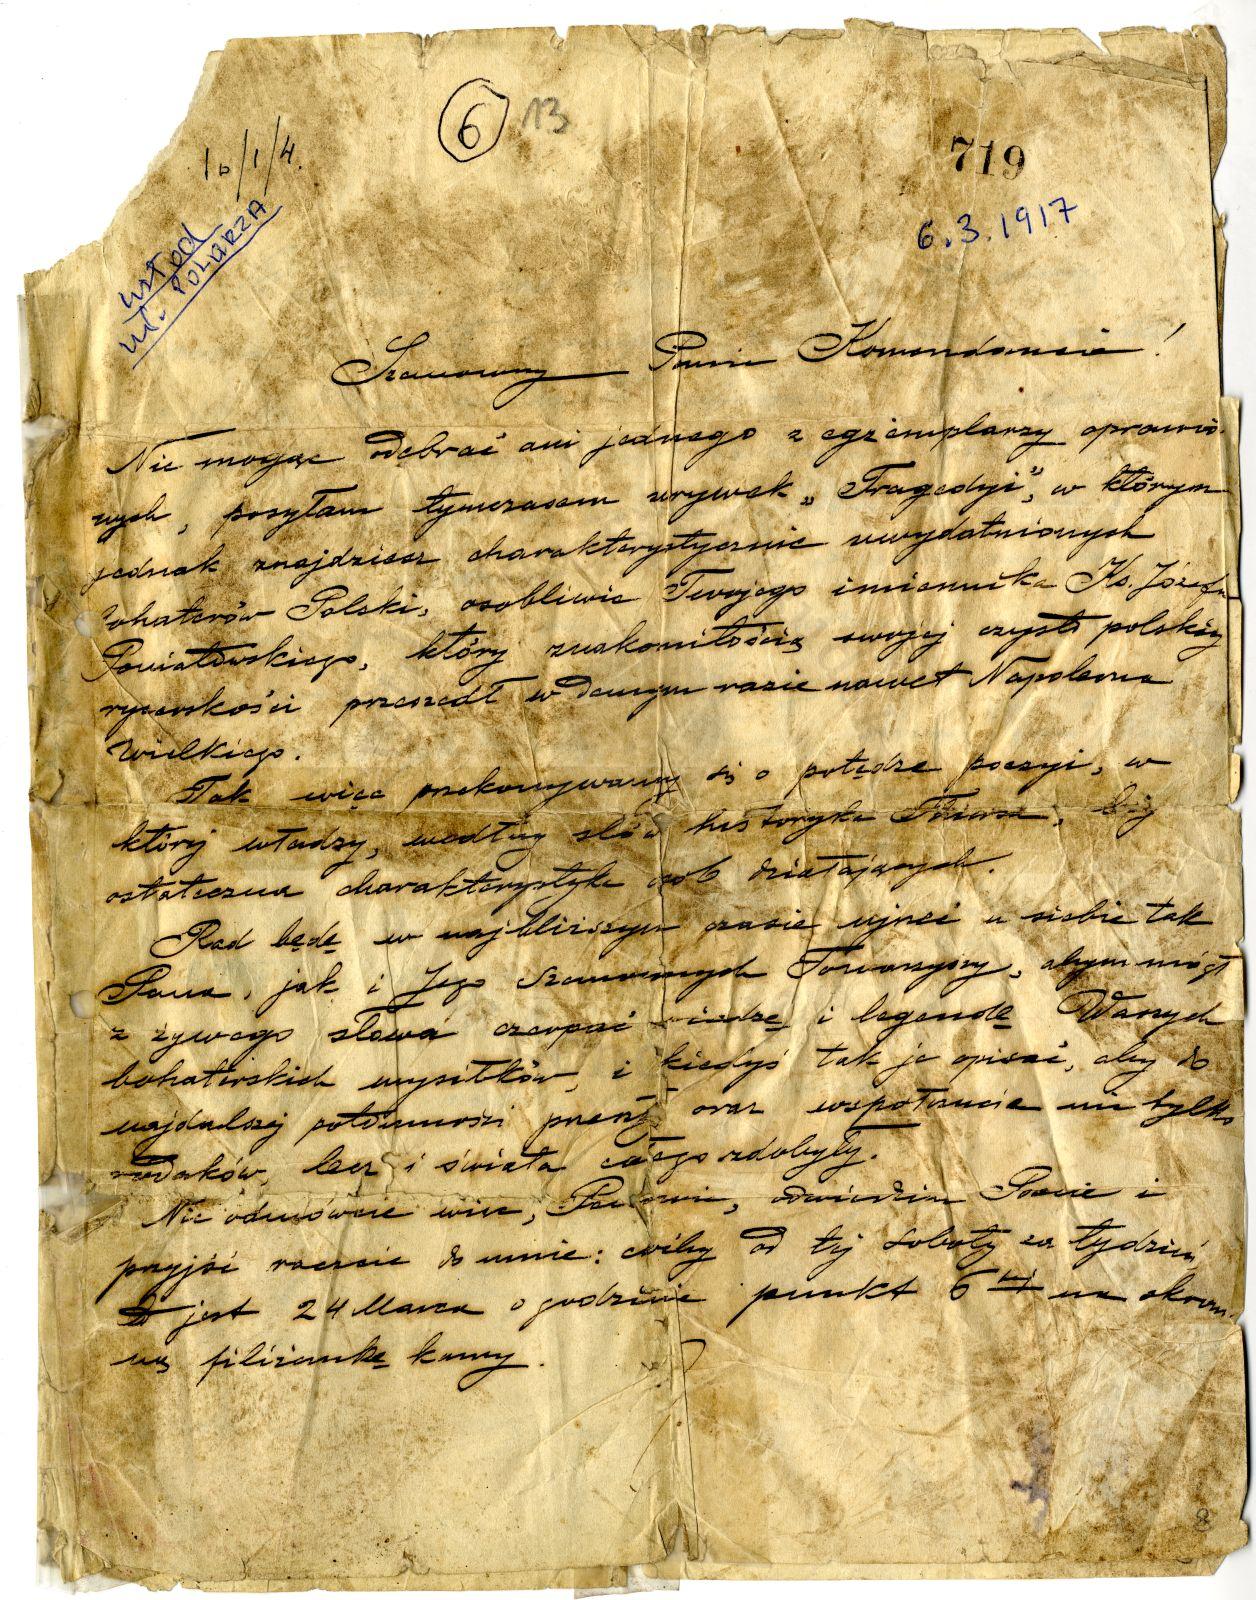 6
13
719
10/1/4.
6.3.1917
wśród
Szanowny Panie Komendancie!
Nie mogąc odebrać ani jednego z egzemplarzy oprawio-
nych, posyłam tymczasem urywek „Tragedyi", w którym
jednak znajdziesz charakterystycznie uwydatnionych
bohaterów Polski, osobliwie Twojego imiennika Ks. Józefa
Poniatowskiego, który znakomitością swojej czysto polskiej
rycerskości przeszedł w danym razie nawet Napoleona
Wielkiego.
Tak więc przekonywamy się o potędze poezyi, w
której władzy, według słów historyka
ostateczna charakterystyka osób działających.
Rad będę w najbliższym czasie ujrzeć u siebie tak
Pana, jak i Jego Szanownych Towarzyszy, abym mógł
z żywego słowa czerpać wiedzę i legendę Waszych
bohaterskich wysiłków, i kiedyś tak je opisać, aby do
najdalszej potomności przeszły oraz współczucie nie tylko
rodaków, lecz i świata całego zdobyły.
Nie odmówcie więc, Panowie, Panie i
przyjść raczcie do mnie: od tej soboty za tydzień
to jest 24 Marca o godzinie punkt 6-tej na skrom-
ną filiżankę kawy.
8